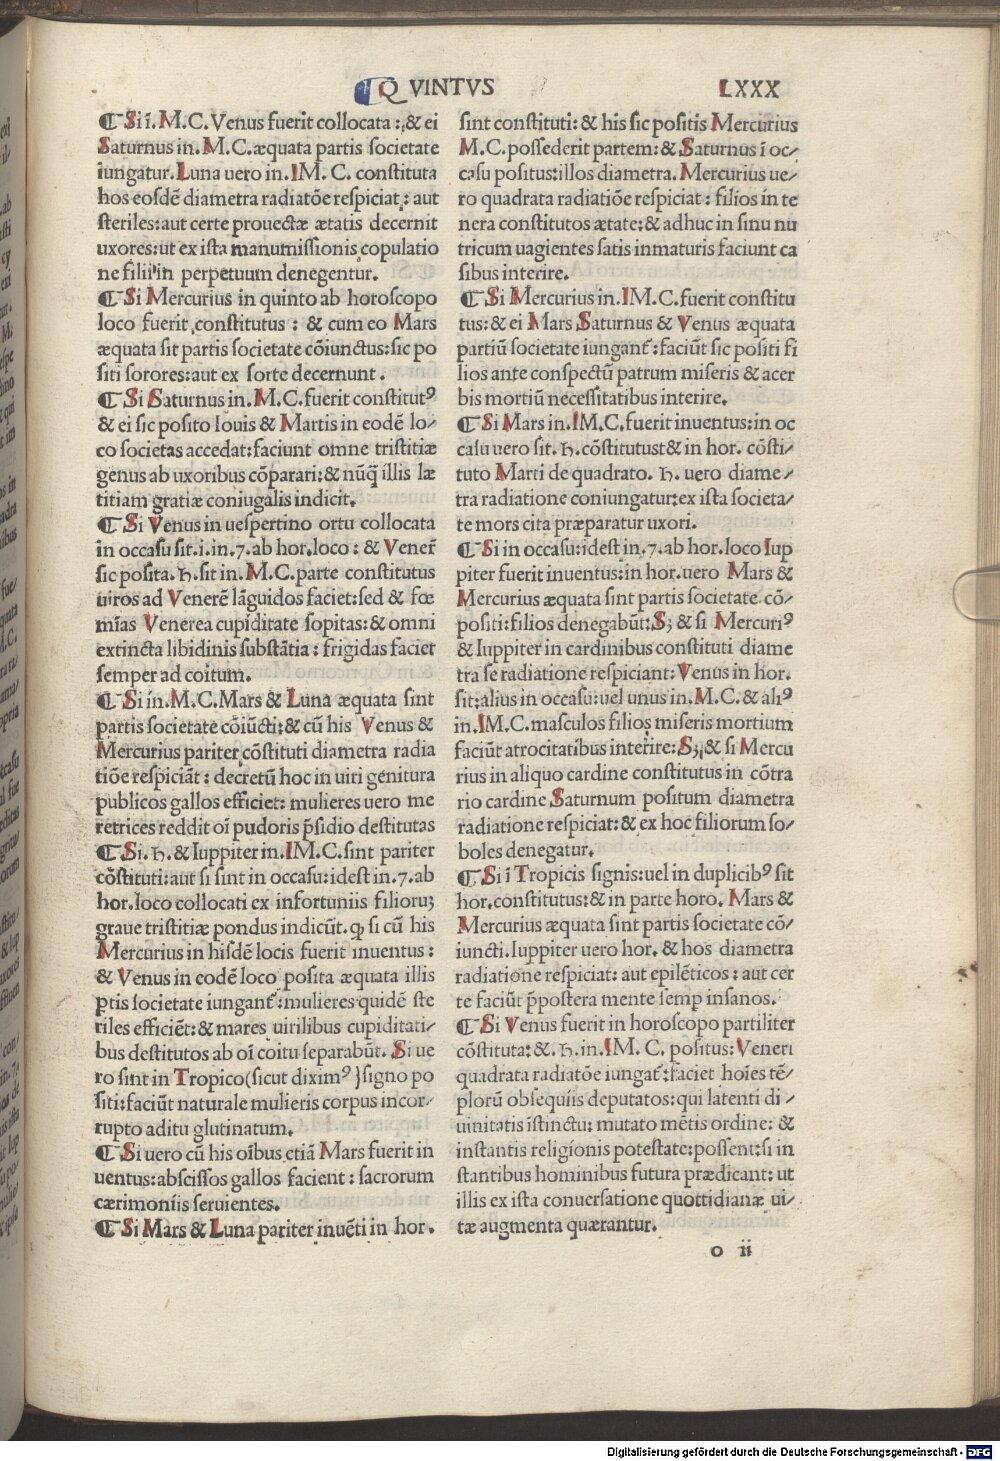 ¶ QVINTVS
LXXX
¶ Si ī. M.C. Venus fuerit collocata: & ei
Saturnus in. M.C. æquata partis societate
iungatur. Luna uero in. IM. C. constituta
hos eosdē diametra radiatōe respiciat: aut
steriles: aut certe prouectæ ætatis decernit
uxores: ut ex ista manumissionis copulatio
ne filii in perpetuum denegentur.
¶ Si Mercurius in quinto ab horoscopo
loco fuerit constitutus: & cum eo Mars
æquata sit partis societate cōiunctus: sic po
siti sorores: aut ex sorte decernunt.
¶ Si Saturnus in. M.C. fuerit constitutꝰ
& ei sic posito Iouis & Martis in eodē lo⸗
co societas accedat: faciunt omne tristitiæ
genus ab uxoribus cōparari: & nūq̄ illis læ
titiam gratiæ coniugalis indicit.
¶ Si Venus in uespertino ortu collocata
in occasu sit. i. in. 7. ab hor. loco: & Vener̄
sic posita. ♄. sit in. M.C. parte constitutus
uiros ad Venerē lāguidos faciet: sed & fœ
mīas Venerea cupiditate sopitas: & omni
extincta libidinis substātia: frigidas faciet
semper ad coitum.
¶ Si in. M.C. Mars & Luna æquata sint
partis societate cōiūcti: & cū his Venus &
Mercurius pariter cōstituti diametra radia
tiōe respiciāt: decretū hoc in uiri genitura
publicos gallos efficiet: mulieres uero me
retrices reddit oī pudoris p̄sidio destitutas
¶ Si. ♄. & Iuppiter in. IM.C. sint pariter
cōstituti: aut si sint in occasu: idest in. 7. ab
hor. loco collocati ex infortuniis filioruꝫ
graue tristitiæ pondus indicūt. ꝙ si cū his
Mercurius in hisdē locis fuerit inuentus:
& Venus in eodē loco posita æquata illis
ꝑtis societate iungant̄: mulieres quidē ste
riles efficiēt: & mares uirilibus cupiditati⸗
bus destitutos ab oī coitu separabūt. Si ue
ro sint in Tropico (sicut diximꝰ) signo po
siti: faciūt naturale mulieris corpus incor⸗
rupto aditu glutinatum.
¶ Si uero cū his oībus etiā Mars fuerit in
uentus: abscissos gallos facient: sacrorum
cærimoniis seruientes.
¶ Si Mars & Luna pariter inuēti in hor.
sint constituti: & his sic positis Mercurius
M.C. possederit partem: & Saturnus ī oc⸗
casu positus: illos diametra. Mercurius ue⸗
ro quadrata radiatiōe respiciat: filios in te
nera constitutos ætate: & adhuc in sinu nu
tricum uagientes satis inmaturis faciunt ca
sibus interire.
¶ Si Mercurius in. IM.C. fuerit constitu
tus: & ei Mars Saturnus & Venus æquata
partiū societate iungant̄: faciūt sic positi fi
lios ante conspectū patrum miseris & acer
bis mortiū necessitatibus interire.
¶ Si Mars in. IM.C. fuerit inuentus: in oc
casu uero sit. ♄. cōstitutust & in hor. cōsti⸗
tuto Marti de quadrato. ♄. uero diame⸗
tra radiatione coniungatur: ex ista societa⸗
te mors cita præparatur uxori.
¶ Si in occasu: idest in. 7. ab hor. loco Iup
piter fuerit inuentus: in hor. uero Mars &
Mercurius æquata sint partis societate cō⸗
positi: filios denegabūt: Sꝫ & si Mercuriꝰ
& Iuppiter in cardinibus constituti diame
tra se radiatione respiciant: Venus in hor.
sit: alius in occasu: uel unus in. M.C. & aliꝰ
in. IM.C. masculos filios miseris mortium
faciūt atrocitatibus interire: Sꝫ & si Mercu
rius in aliquo cardine constitutus in cōtra
rio cardine Saturnum positum diametra
radiatione respiciat: & ex hoc filiorum so⸗
boles denegatur.
¶ Si ī Tropicis signis: uel in duplicibꝰ sit
hor. constitutus: & in parte horo. Mars &
Mercurius æquata sint partis societate cō⸗
iuncti. Iuppiter uero hor. & hos diametra
radiatione respiciat: aut epilēticos: aut cer
te faciūt p̄postera mente semp insanos.
¶ Si Venus fuerit in horoscopo partiliter
cōstituta: &. ♄. in. IM. C. positus: Veneri
quadrata radiatōe iungat̄: faciet hoīes tē⸗
plorū obsequiis deputatos: qui latenti di⸗
uinitatis īstinctu: mutato mētis ordine: &
instantis religionis potestate: possent: si in
stantibus hominibus futura prædicant: ut
illis ex ista conuersatione quottidianæ ui⸗
tæ augmenta quærantur.
o ii
Digitalisierung gefördert durch die Deutsche Forschungsgemeinschaft - DFG